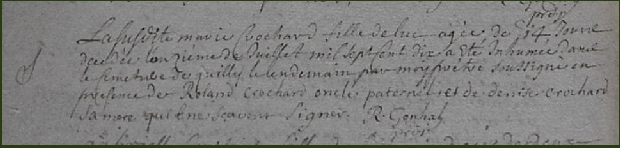 Lasusdite marie crochard fille de luc agée de 14 Jours
decedée lonziéme de Juillet mil sept cent dix a eté Inhumée dans
le semetiere de le lendemain par moy prêtre soussigné en
presence de Roland crochard oncle paternel et de denise crochard
sa mere qui ne scavent signer. R. Gonhal
prêtre